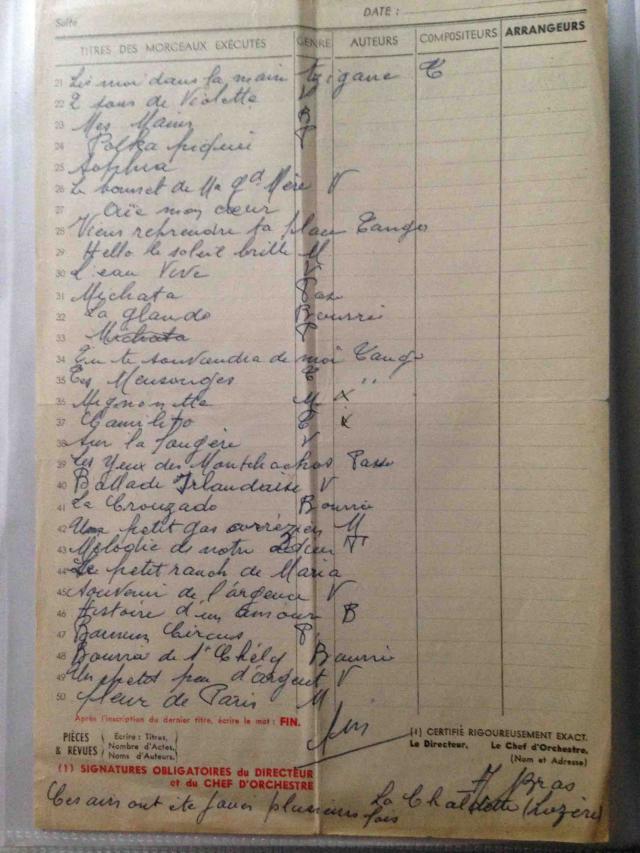 Suite
DATE :
TITRES DES MORCEAUX EXÉCUTÉS GENRE AUTEURS COMPOSITEURS ARRANGEURS
21 dans la main tzigane T
22 2 sous de Violette V
23 Mes Mains B
24 Polka piquée P
25 Sophia
26 Le bonnet de Ma gd Mère V
27 Aïe mon cœur
28 Viens reprendre ta place Tango
29 Hello le soleil brille M
30 L'eau Vive V
31 Michata Paso
32 La glaudo Bourrée
33 Michata P
34 Tu te souviendra de moi Tango
35 Tes Mensonges T "
36 Mignonette M x
37 T x
38 Sur la fougère V
39 Les Yeux des Paso
40 Ballade Irlandaise V
41 La Crouzado Bourrée
42 Un petit gas corrézien M
43 Mélodie de notre
44 Le petit ranch de Maria
45 Souvenir de l'argence V
46 Histoire d'un amour B
47 Barnum Circus P
48 Bourrée de St Chély Bourrée
49 Un petit peu d'argent V
50 fleur de Paris M
Après l'inscription du dernier titre, écrire le mot : FIN.
fin
PIÈCES & REVUES
Ecrire : Titres,
Nombre d'Actes,
Noms d'Auteurs.
(1) CERTIFIÉ RIGOUREUSEMENT EXACT.
Le Directeur, Le Chef d'Orchestre,
(Nom et Adresse)
(1) SIGNATURES OBLIGATOIRES du DIRECTEUR
et du CHEF D'ORCHESTRE
Bras
La Chaldette (Lozère)
Ces airs ont été joués plusieurs fois